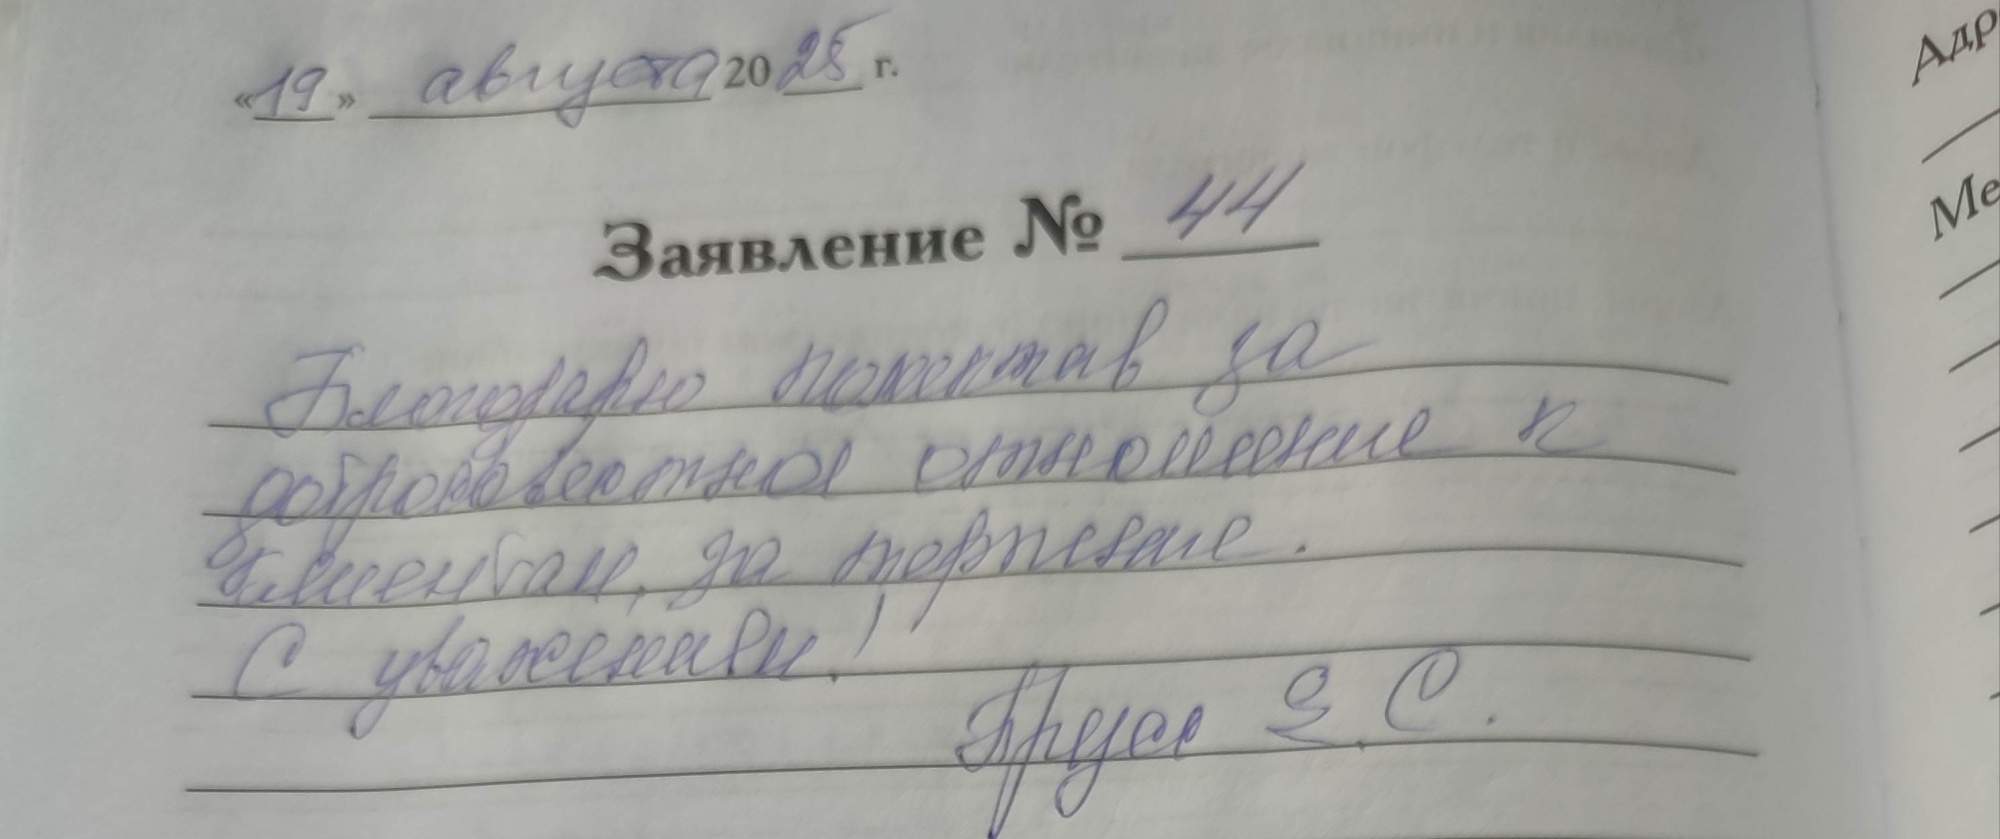 «19» августа 2025 г.
Заявление № 44
Благодарю коллектив за
добросовестное отношение к
клиентам, за терпение.
С уважением!
З. С.
Адр
Ме